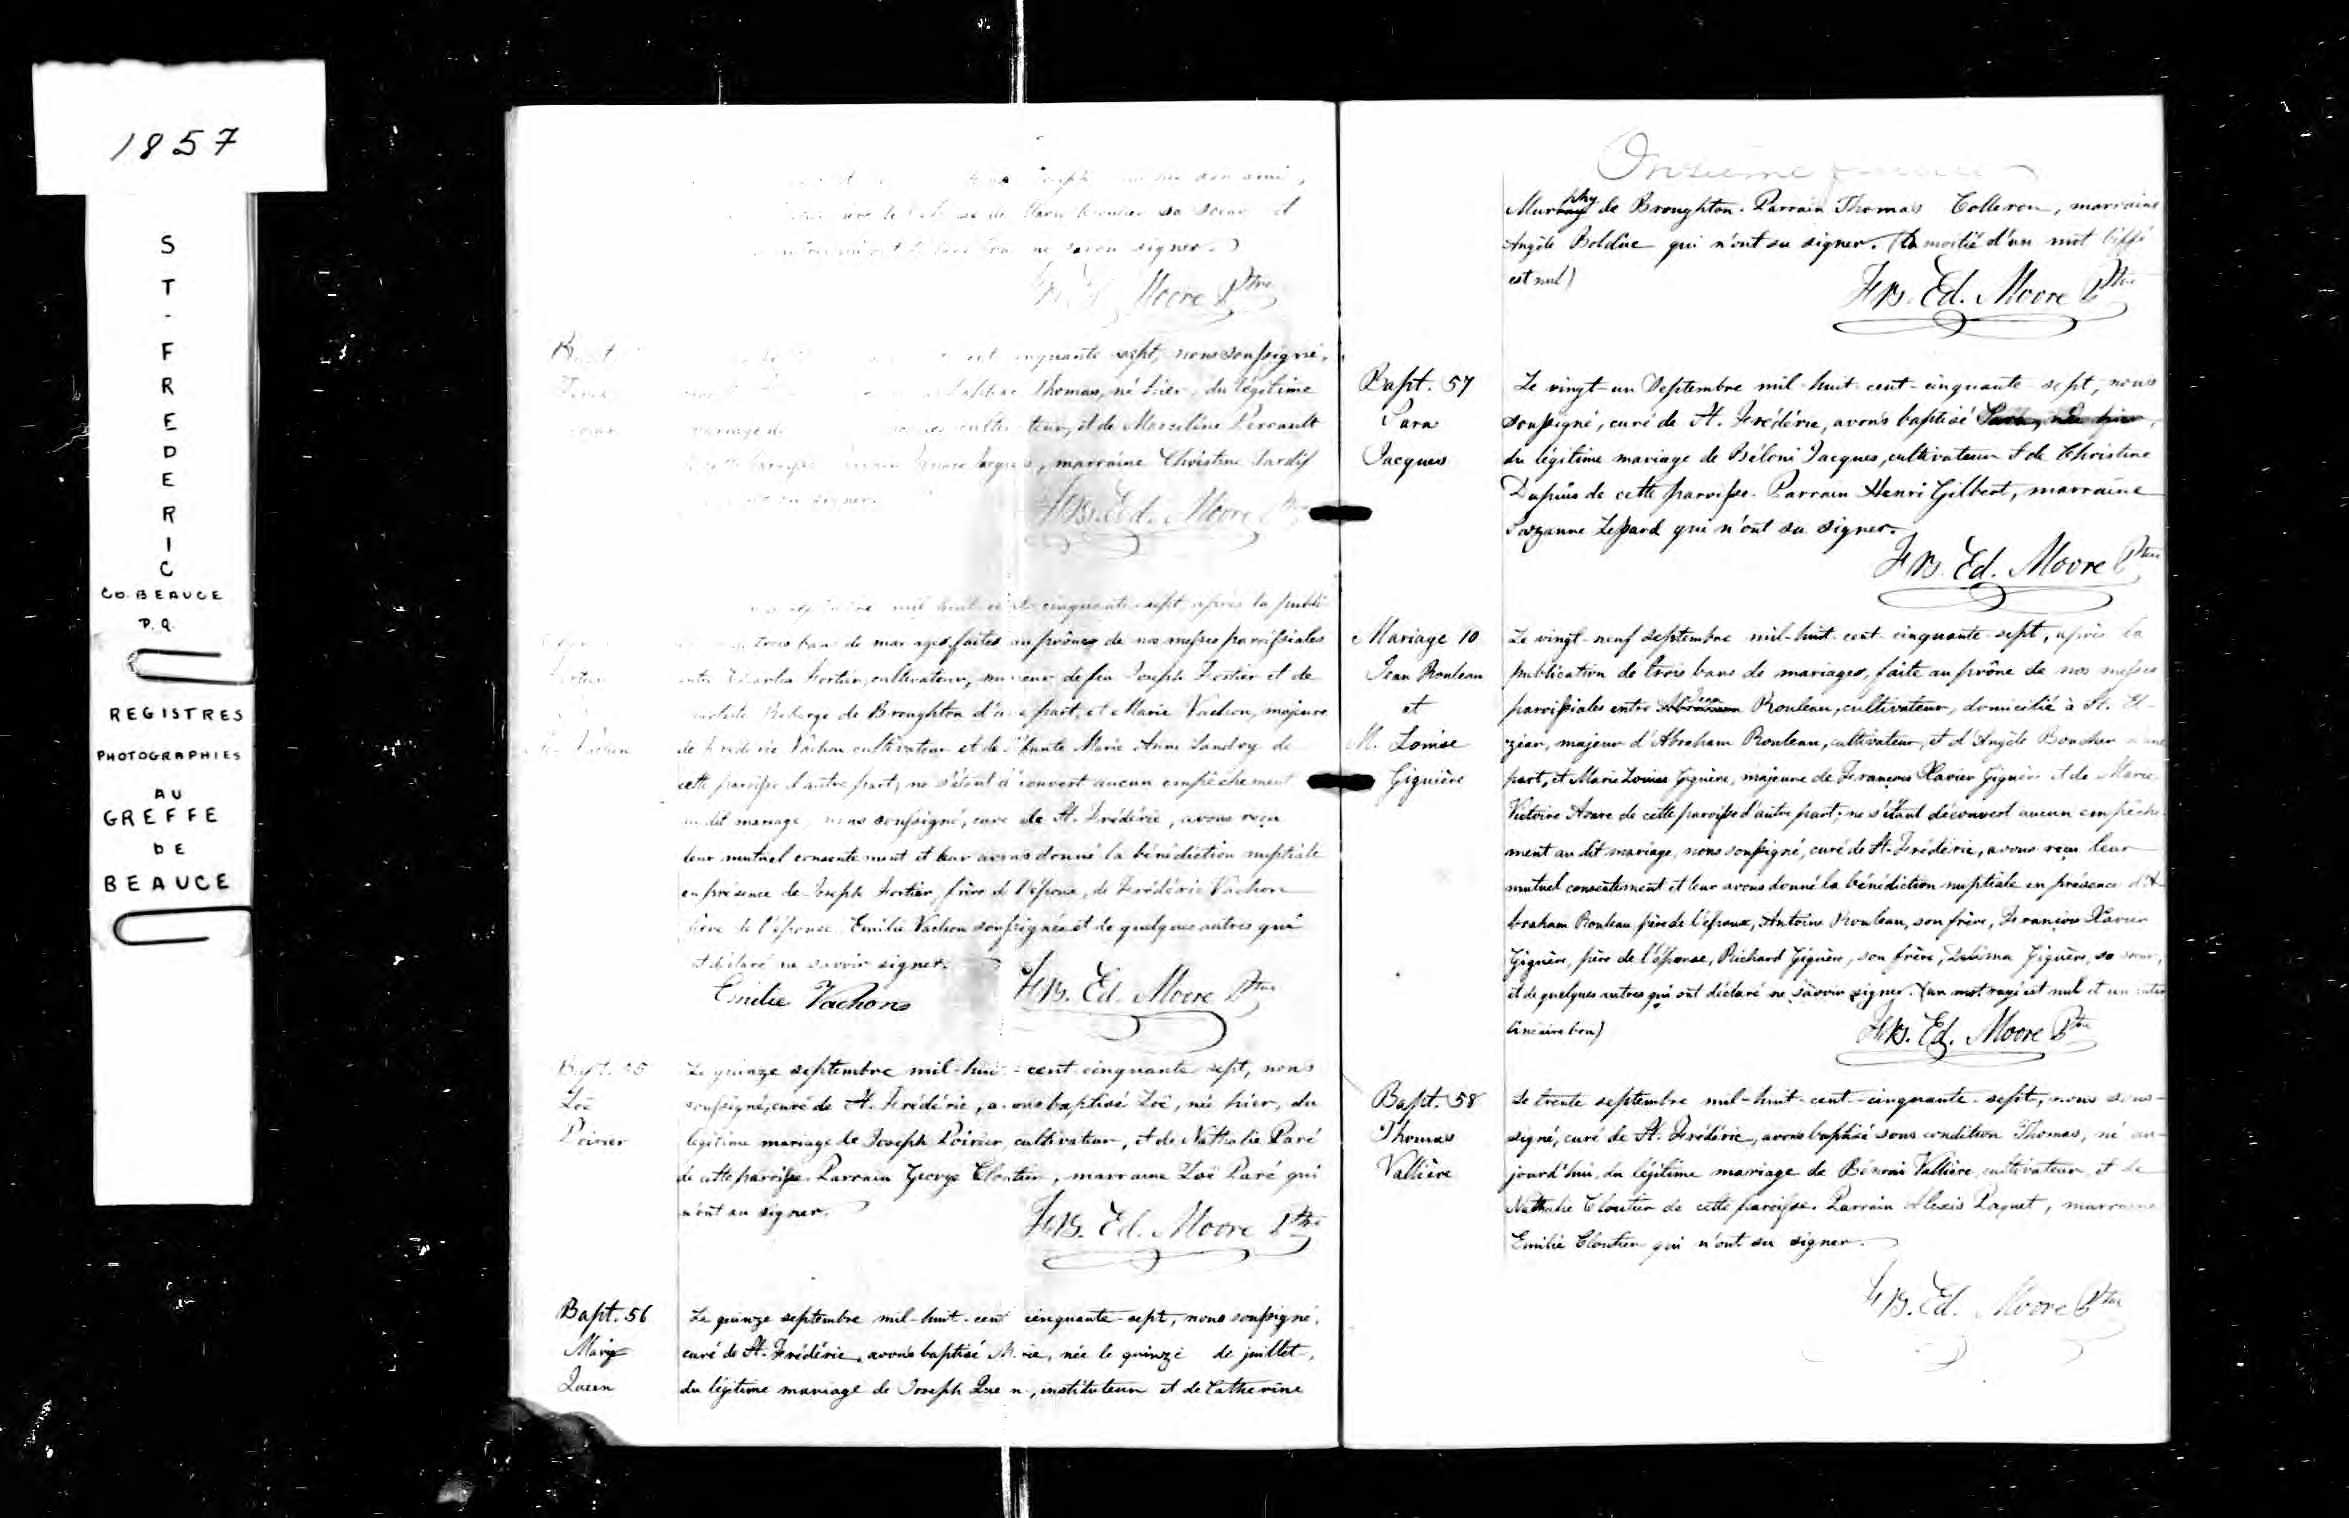 1857
ST-FREDERIC
CO. BEAUCE
P.Q.
REGISTRES
PHOTOGRAPHIES
AU
GREFFE
DE
BEAUCE
son ami,
de Marie Cloutier sa soeur et
signer.
Frs. Ed. Moore Ptre
Bapt.
cent cinquante sept, nous soussigné,
Thomas, né hier, du légitime
mariage de cultivateur, et de Marceline Perreault
Jacques, marraine Christine Tardif
su signer.
Frs. Ed. Moore
septembre mil huit cent cinquante sept, après la publi
trois bans de mariages faites au prônes de nos messes paroissiales
Fortier
entre Charles Fortier, cultivateur, mineur de feu Joseph Fortier et de
Roberge de Broughton d'une part, et Marie Vachon, majeure
Vachon
de Frédéric Vachon cultivateur et de défunte Marie Anne Landry de
cette paroisse d'autre part, ne s'étant découvert aucun empêchement
au dit mariage, nous soussigné, curé de St. Frédéric, avons reçu
leur mutuel consentement et leur avons donné la bénédiction nuptiale
en présence de Joseph Fortier, frère de l'époux, de Frédéric Vachon
père de l'épouse, Emilie Vachon soussignée et de quelques autres qui
ont déclaré ne savoir signer.
Emilie Vachon
Frs. Ed. Moore Ptre
Bapt. 55
Zoé
Poirier
Le quinze septembre mil-huit-cent-cinquante sept, nous
soussigné, curé de St. Frédéric, avons baptisé Zoé, née hier, du
légitime mariage de Joseph Poirier, cultivateur, et de Nathalie Paré
de cette paroisse. Parrain George Cloutier, marraine Zoé Paré qui
n'ont su signer.
Frs. Ed. Moore Ptre
Bapt. 56
Marie
Queen
Le quinze septembre mil-huit-cent cinquante-sept, nous soussigné,
curé de St. Frédéric, avons baptisé Marie, née le quinze de juillet,
du légitime mariage de Joseph Queen, instituteur et de Catherine
Onzième
Murphy de Broughton. Parrain Thomas Colleron, marraine
Angèle Bolduc qui n'ont su signer. (la moitié d'un mot biffé
est nul)
Frs. Ed. Moore Ptre
Bapt. 57
Sara
Jacques
Le vingt-un Septembre mil-huit-cent-cinquante sept, nous
soussigné, curé de St. Frédéric, avons baptisé Sara, née hier,
du légitime mariage de Béloni Jacques, cultivateur et de Christine
Dupuis de cette paroisse. Parrain Henri Gilbert, marraine
Suzanne Lessard qui n'ont su signer.
Frs. Ed. Moore Ptre
Mariage 10
Jean Rouleau
et
M. Louise
Giguière
Le vingt-neuf septembre mil-huit-cent cinquante-sept, après la
publication de trois bans de mariages, faite au prône de nos messes
paroissiales entre Jean Rouleau, cultivateur, domicilié à St. El-
zéar, majeur d'Abraham Rouleau, cultivateur, et d'Angèle Boucher d'une
part, et Marie Louise Giguère, majeure de François Xavier Giguère et de Marie
Victoire de cette paroisse d'autre part, ne s'étant découvert aucun empêche-
ment au dit mariage, nous soussigné, curé de St. Frédéric, avons reçu leur
mutuel consentement et leur avons donné la bénédiction nuptiale en présence d'A-
braham Rouleau, père de l'époux, Antoine Rouleau, son frère, François Xavier
Giguère, père de l'épouse, Richard Giguère, son frère, Délima Giguère, sa soeur,
et de quelques autres qui ont déclaré ne savoir signer. (un mot rayé est nul et un inter
linéaire bon)
Frs. Ed. Moore Ptre
Bapt. 58
Thomas
Vallière
Le trente septembre mil-huit-cent-cinquante-sept, nous sous-
signé, curé de St. Frédéric, avons baptisé sous condition Thomas, né au-
jourd'hui, du légitime mariage de Bénoni Vallière, cultivateur, et de
Nathalie Cloutier de cette paroisse. Parrain Alexis Paquet, marraine
Emilie Cloutier qui n'ont su signer.
Frs. Ed. Moore Ptre